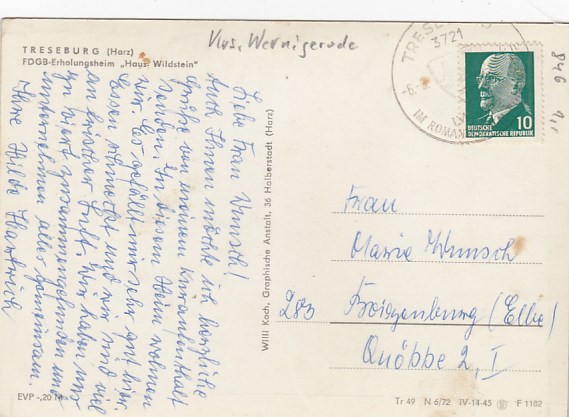 TRESEBURG (Harz)
FDGB-Erholungsheim „Haus Wildstein"
Krs. Wernigerode
3721
IM ROMAN
DEUTSCHE
DEMOKRATISCHE REPUBLIK
10
846
Liebe Frau Wunsch!
Auch Ihnen möchte ich herzliche
Grüße von meinem Kuraufenthalt
senden. In diesem Heim wohnen
wir. Es gefällt mir sehr gut hier.
Essen schmeckt und wir sind viel
an frischer Luft. Wir haben uns
zu viert zusammengefunden und
unternehmen alles gemeinsam.
Ihre Hilde
Willi Koch, Graphische Anstalt, 36 Halberstadt (Harz)
Frau
Maria Wunsch
283 Boizenburg (Elbe)
Quöbbe 2, I
EVP -,20 M
Tr 49 N 6/72 IV-14-45 F 1182